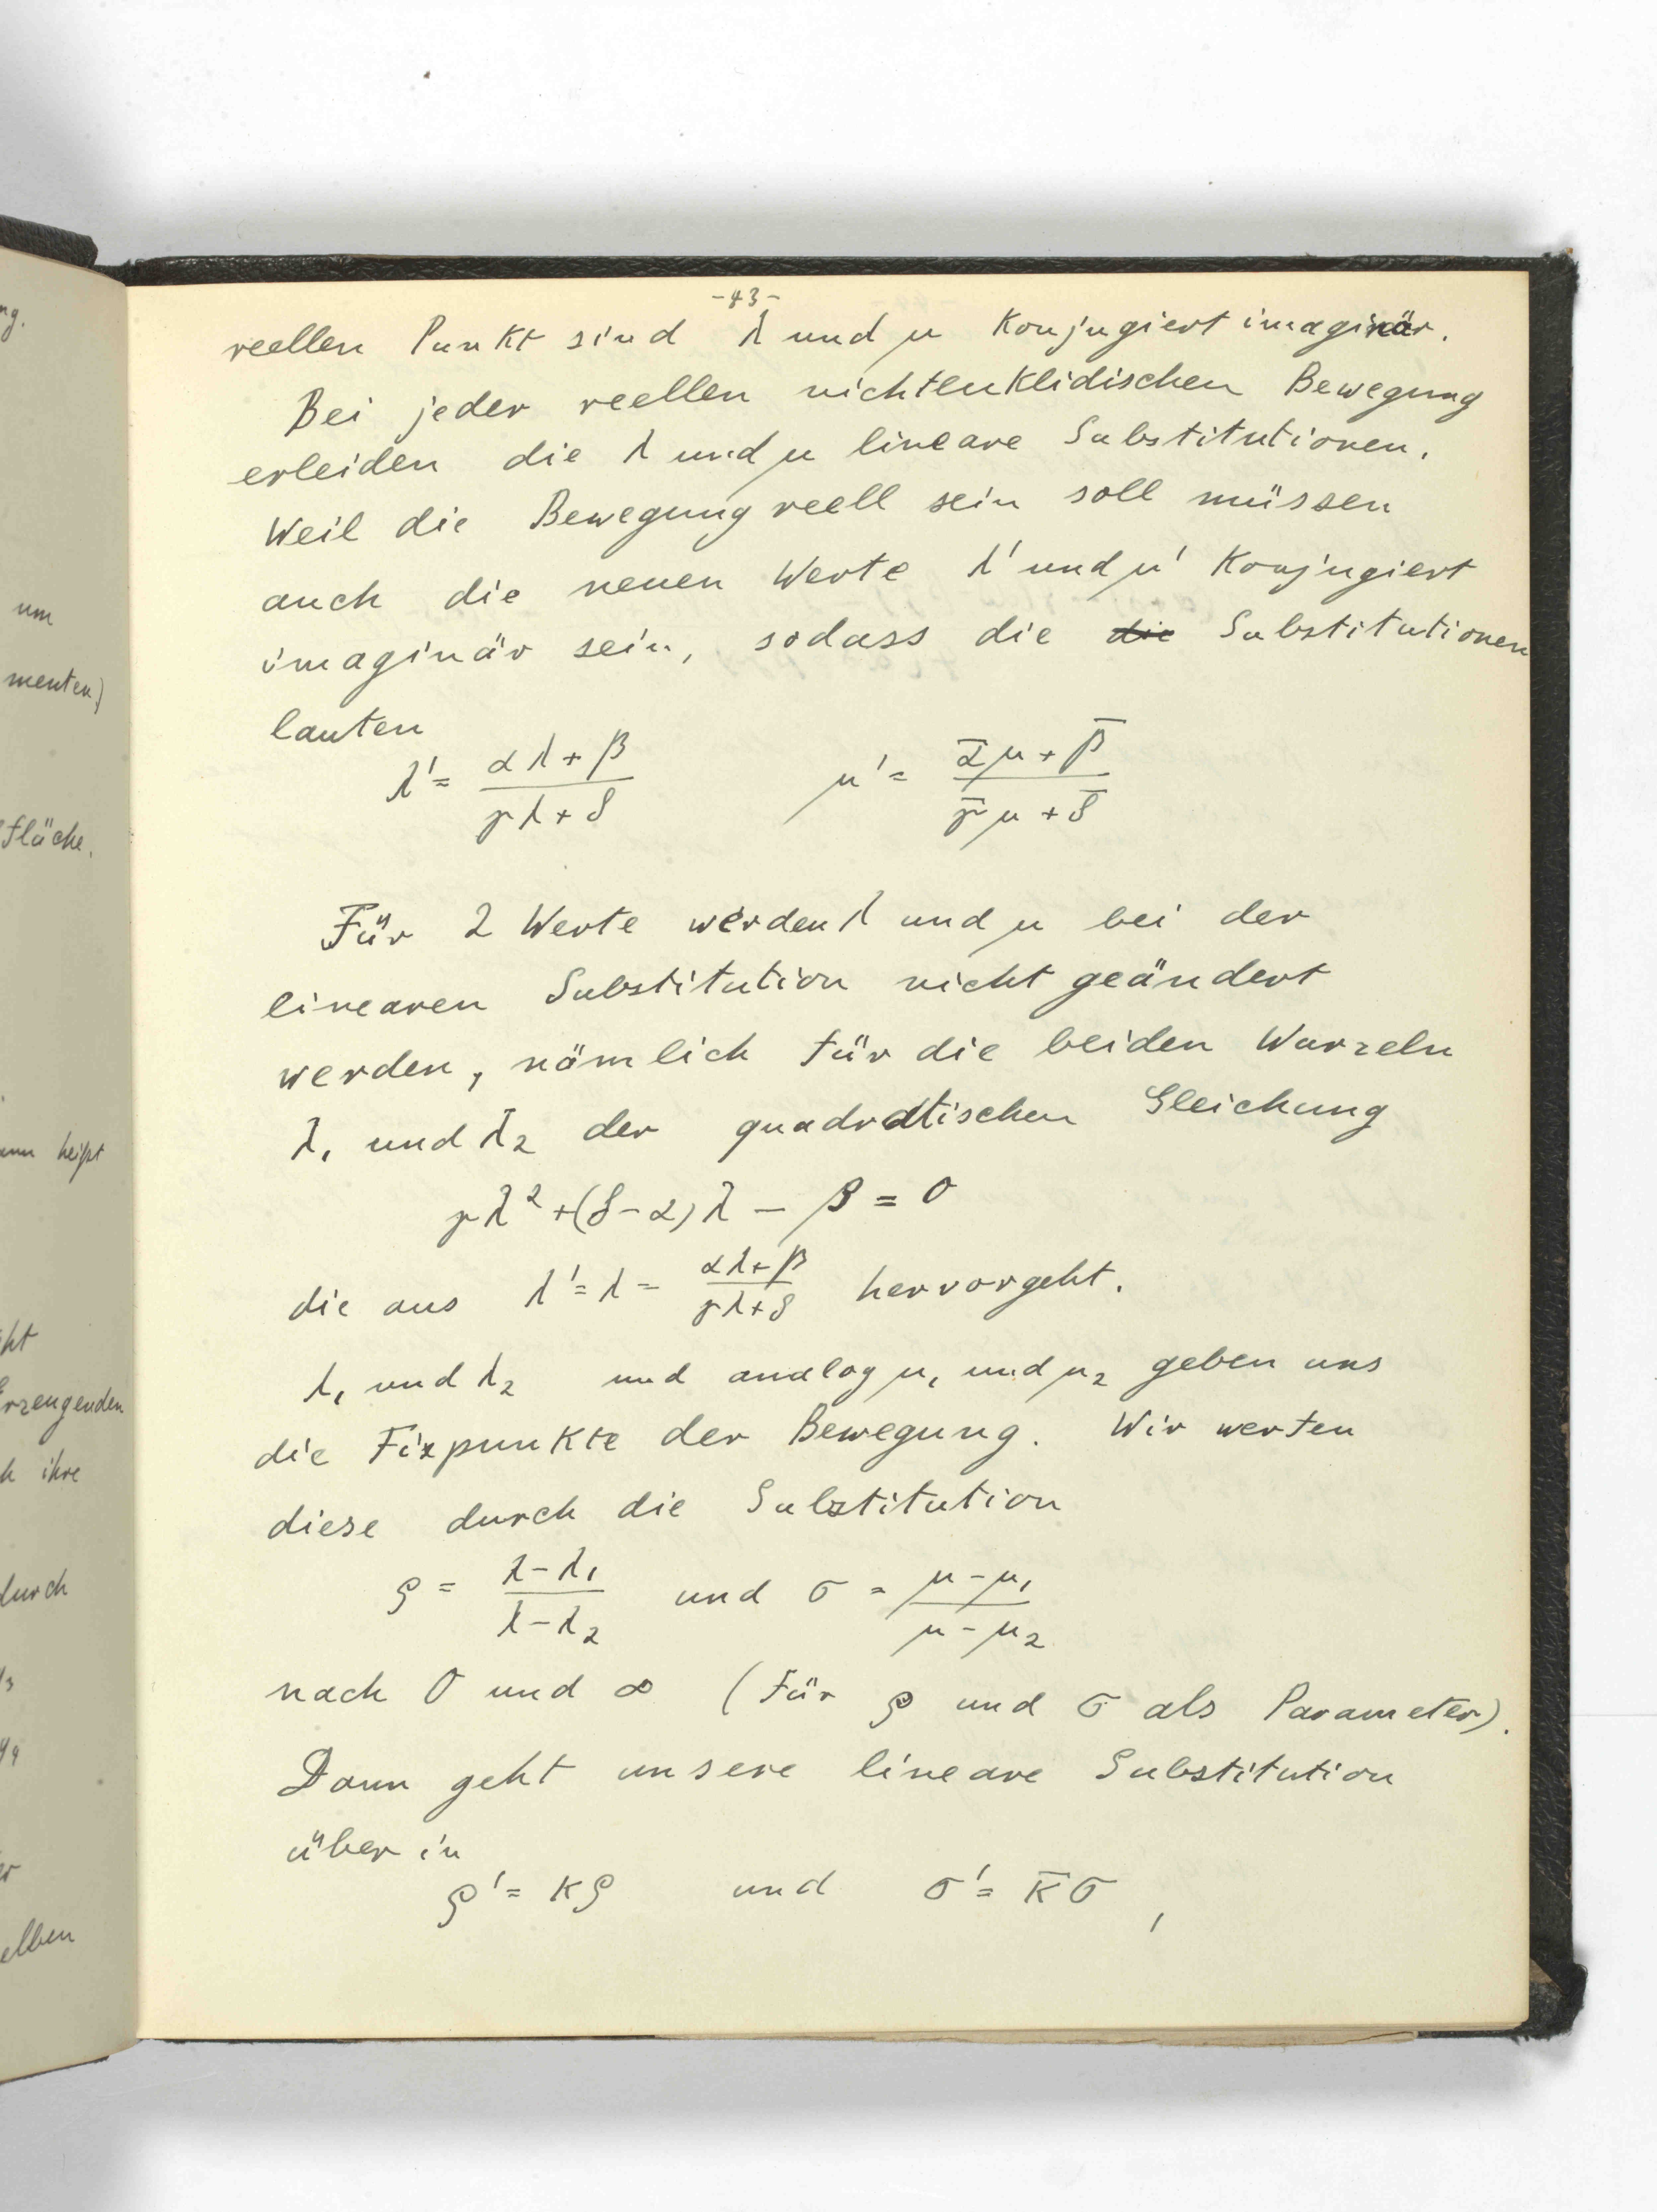 ng.
um
menten)
fläche.
heißt
ht
Erzeugenden
h ihre
durch
elben
-43-
reellen Punkt sind λ und μ Konjugiert imaginär.
Bei jeder reellen nichteuklidischen Bewegung
erleiden die λ und μ lineare Substitutionen.
Weil die Bewegung reell sein soll müssen
auch die neuen Werte λ' und μ' Konjugiert
imaginär sein, sodass die die Substitutionen
lauten
λ' = (αλ + β)/(γλ + δ)    μ' = (ᾱμ + β̄)/(γ̄μ + δ̄)
Für 2 Werte werden λ und μ bei der
linearen Substitution nicht geändert
werden, nämlich für die beiden Wurzeln
λ₁ und λ₂ der quadratischen Gleichung
γλ² + (δ - α)λ - β = 0
die aus λ' = λ = (αλ + β)/(γλ + δ) hervorgeht.
λ₁ und λ₂ und analog μ₁ und μ₂ geben uns
die Fixpunkte der Bewegung. Wir werten
diese durch die Substitution
ρ = (λ - λ₁)/(λ - λ₂) und σ = (μ - μ₁)/(μ - μ₂)
nach 0 und ∞ (für ρ und σ als Parameter).
Dann geht unsere lineare Substitution
über in
ρ' = Kρ und σ' = K̄σ,